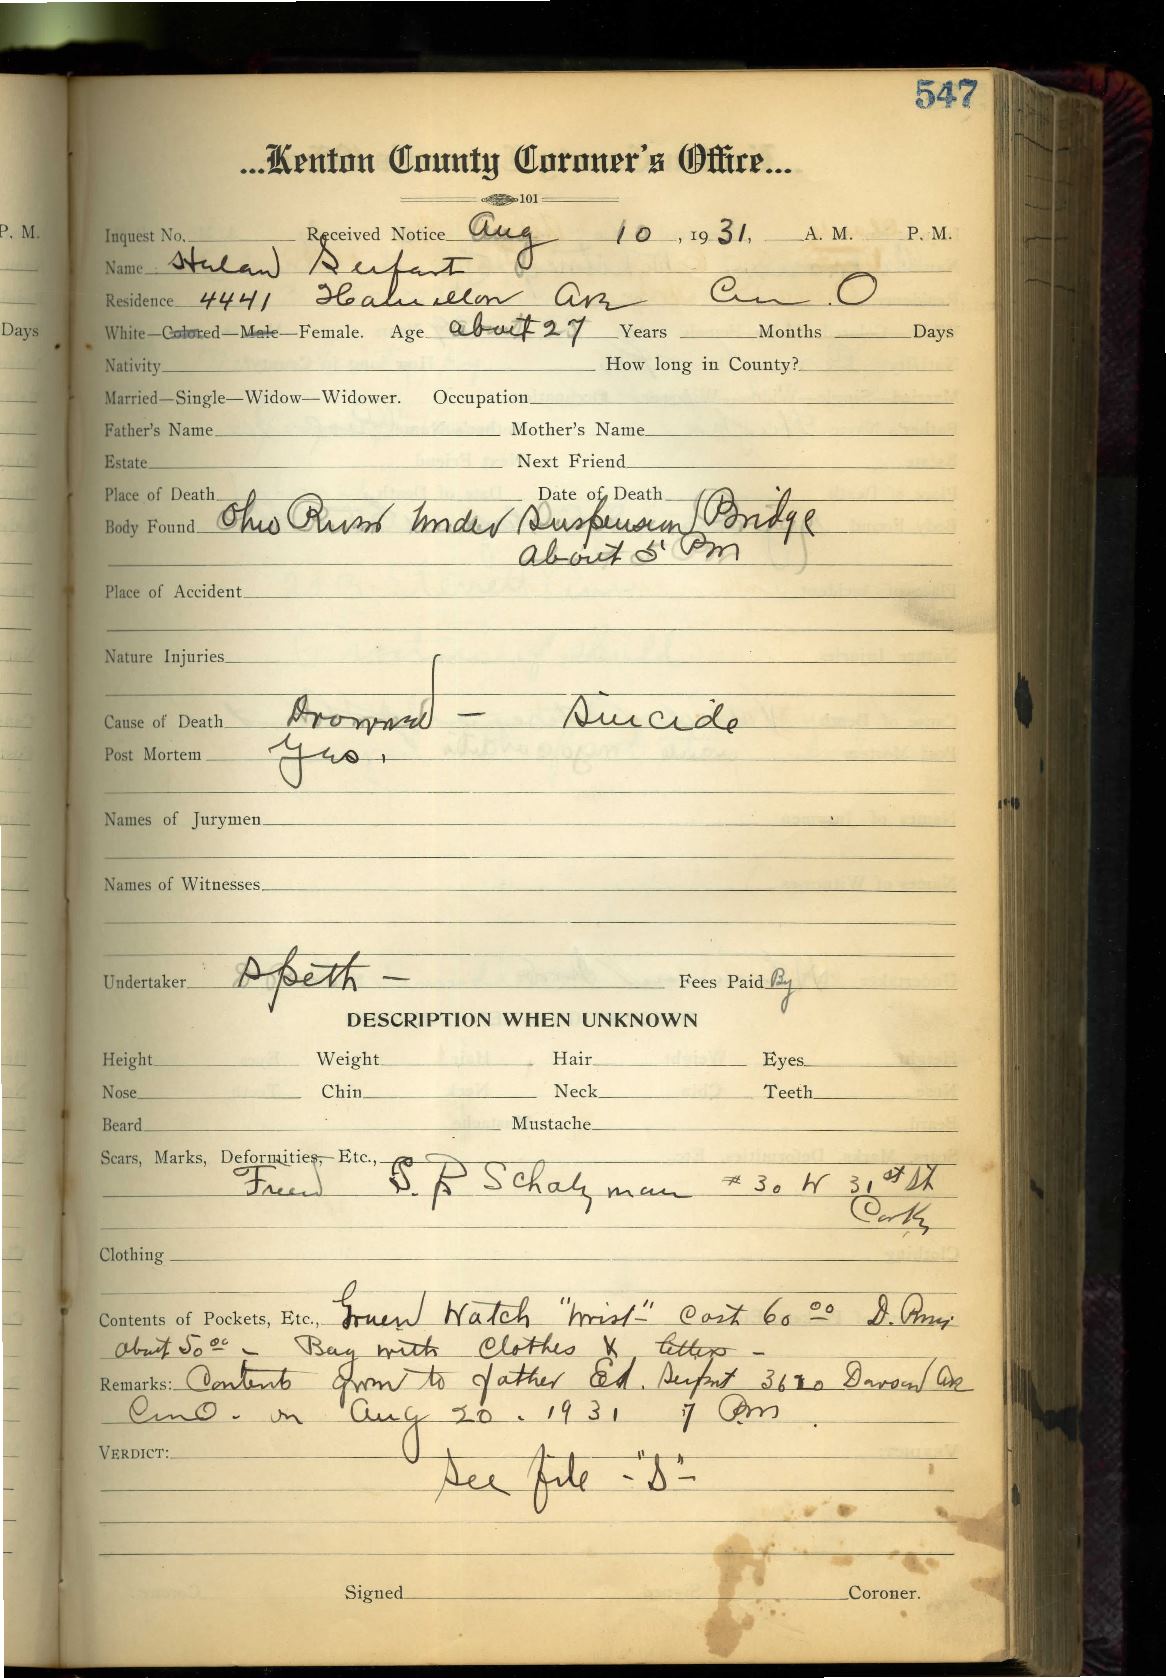 547
P. M.
...Kenton County Coroner's Office...
101
Inquest No. Received Notice Aug 10, 1931, A. M. P. M.
Name Seifart
Residence 4441 Hamilton Ave Cin. O
Days
White—Colored—Male—Female. Age about 27 Years Months Days
Nativity How long in County?
Married—Single—Widow—Widower. Occupation
Father's Name Mother's Name
Estate Next Friend
Place of Death Date of Death
Body Found Ohio River Under Suspension Bridge
about 5 Pm
Place of Accident
Nature Injuries
Cause of Death Drowned — Suicide
Post Mortem Yes.
Names of Jurymen
Names of Witnesses
Undertaker Speth — Fees Paid By
DESCRIPTION WHEN UNKNOWN
Height Weight Hair Eyes
Nose Chin Neck Teeth
Beard Mustache
Scars, Marks, Deformities, Etc.,
Friend Schatzman # 30 W 31st St
Clothing
Contents of Pockets, Etc., Gruen Watch "Wrist" Cost 60 00 D. Ring
about 50 00 — Bag with Clothes & letters —
Remarks: Contents given to father Ed. Ave
CinO. on Aug 20. 1931 7 Pm.
VERDICT:
See file -"S"-
Signed Coroner.